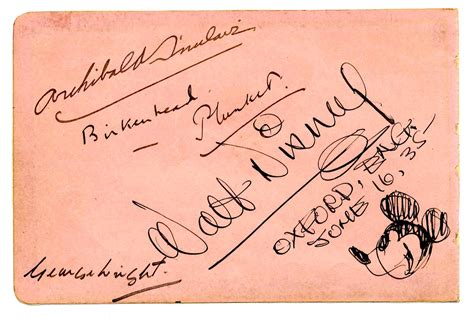 Archibald Sinclair
Birkenhead
Plunket.
Walt Disney
OXFORD, ENG.
JUNE 16, 35-
George Wright.